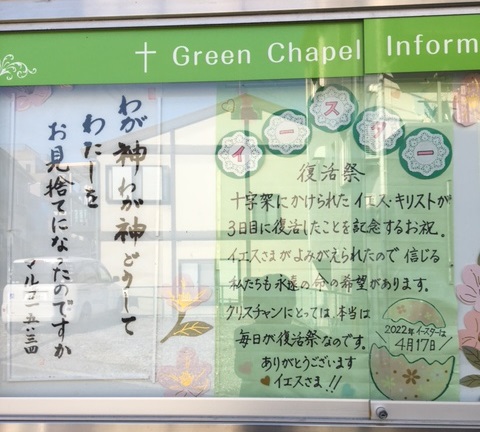 † Green Chapel Inform
わが神わが神どうして
わたしを
お見捨てになったのですか
マルコ一五:三四
イースター
復活祭
十字架にかけられたイエス・キリストが
3日目に復活したことを記念するお祝。
イエスさまがよみがえられたので 信じる
私たちも永遠の命の希望があります。
クリスチャンにとっては、本当は
毎日が復活祭なのです。
ありがとうございます
イエスさま!!
2022年イースターは
4月17日!